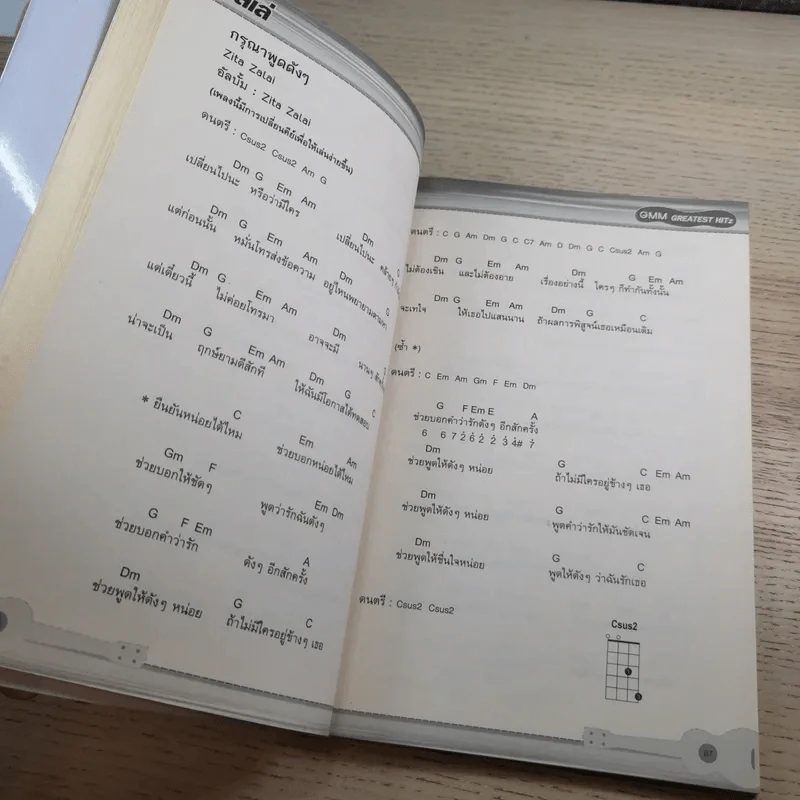 กรุณาพูดดังๆ
Zita Zalai
อัลบั้ม : Zita Zalai
(เพลงนี้มีการเปลี่ยนคีย์เพื่อให้เล่นง่ายขึ้น)
ดนตรี : Csus2 Csus2 Am G
Dm G Em Am Dm G
เปลี่ยนไปนะ หรือว่ามีใคร เปลี่ยนไปนะ
Dm G Em Am Dm G
แต่ก่อนนั้น หมั่นโทรส่งข้อความ อยู่ไหนพยายามตามหา
Dm G Em Am Dm
แต่เดี๋ยวนี้ ไม่ค่อยโทรมา อาจจะมี นานๆ
Dm G Em Am Dm G C
น่าจะเป็น ฤกษ์ยามดีสักที ให้ฉันมีโอกาสได้ทดสอบ
C Em Am
* ยืนยันหน่อยได้ไหม ช่วยบอกหน่อยได้ไหม
Gm F Em Dm
ช่วยบอกให้ชัดๆ พูดว่ารักฉันดังๆ
G F Em A
ช่วยบอกคำว่ารัก ดังๆ อีกสักครั้ง
Dm G C
ช่วยพูดให้ดังๆ หน่อย ถ้าไม่มีใครอยู่ข้างๆ เธอ
GMM GREATEST HITz
ดนตรี : C G Am Dm G C C7 Am D Dm G C Csus2 Am G
Dm G Em Am Dm G Em Am
ไม่ต้องเขิน และไม่ต้องอาย เรื่องอย่างนี้ ใครๆ ก็ทำกันทั้งนั้น
Dm G Em Am Dm G C
จะเทใจ ให้เธอไปแสนนาน ถ้าผลการพิสูจน์เธอเหมือนเดิม
(ซ้ำ *)
ดนตรี : C Em Am Gm F Em Dm
G F Em E A
ช่วยบอกคำว่ารักดังๆ อีกสักครั้ง
6 6 7 2 6 2 2 3 4# 7
Dm G C Em Am
ช่วยพูดให้ดังๆ หน่อย ถ้าไม่มีใครอยู่ข้างๆ เธอ
Dm G C Em Am
ช่วยพูดให้ดังๆ หน่อย พูดคำว่ารักให้มันชัดเจน
Dm G C
ช่วยพูดให้ชื่นใจหน่อย พูดให้ดังๆ ว่าฉันรักเธอ
ดนตรี : Csus2 Csus2
Csus2
87